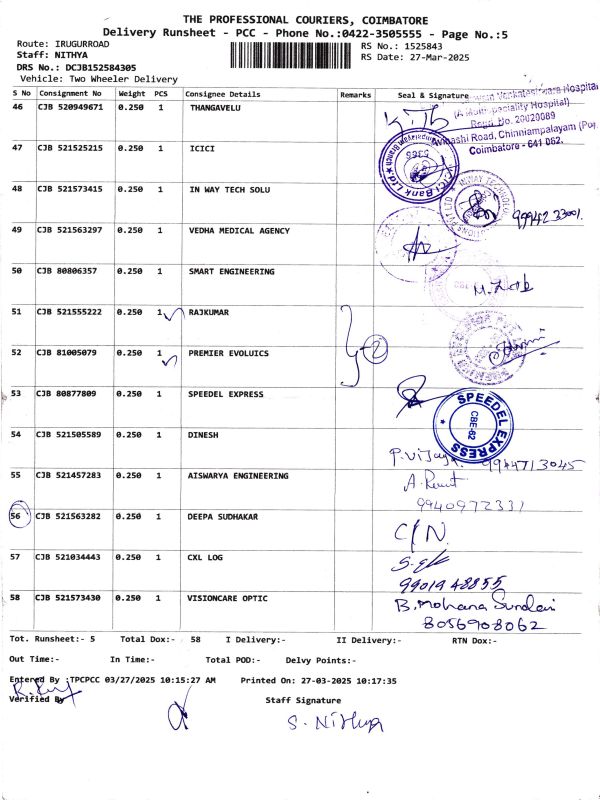 THE PROFESSIONAL COURIERS, COIMBATORE
Delivery Runsheet - PCC - Phone No.:0422-3505555 - Page No.:5
Route: IRUGURROAD
RS No.: 1525843
Staff: NITHYA
RS Date: 27-Mar-2025
DRS No.: DCJB152584305
Vehicle: Two Wheeler Delivery
S No Consignment No Weight PCS Consignee Details Remarks Seal & Signature
46 CJB 520949671 0.250 1 THANGAVELU
Hospital
(A Multi Speciality Hospital)
Regd. No. 20020089
Avinashi Road, Chinniampalayam (Po)
Coimbatore - 641 062.
47 CJB 521525215 0.250 1 ICICI
ICICI Bank Ltd
48 CJB 521573415 0.250 1 IN WAY TECH SOLU
99942 33001
49 CJB 521563297 0.250 1 VEDHA MEDICAL AGENCY
50 CJB 80806357 0.250 1 SMART ENGINEERING
51 CJB 521555222 0.250 1 RAJKUMAR
52 CJB 81005079 0.250 1 PREMIER EVOLUICS
2
53 CJB 80877809 0.250 1 SPEEDEL EXPRESS
SPEEDEL EXPRESS
CBE-62
54 CJB 521505589 0.250 1 DINESH
P.Vijay 9944713045
55 CJB 521457283 0.250 1 AISWARYA ENGINEERING
9940972331
56 CJB 521563282 0.250 1 DEEPA SUDHAKAR
C/N.
57 CJB 521034443 0.250 1 CXL LOG
9901948855
58 CJB 521573430 0.250 1 VISIONCARE OPTIC
B. Mohana Sundari
8056908062
Tot. Runsheet:- 5 Total Dox:- 58 I Delivery:- II Delivery:- RTN Dox:-
Out Time:- In Time:- Total POD:- Delvy Points:-
Entered By :TPCPCC 03/27/2025 10:15:27 AM Printed On: 27-03-2025 10:17:35
Verified By Staff Signature
S. Nithya